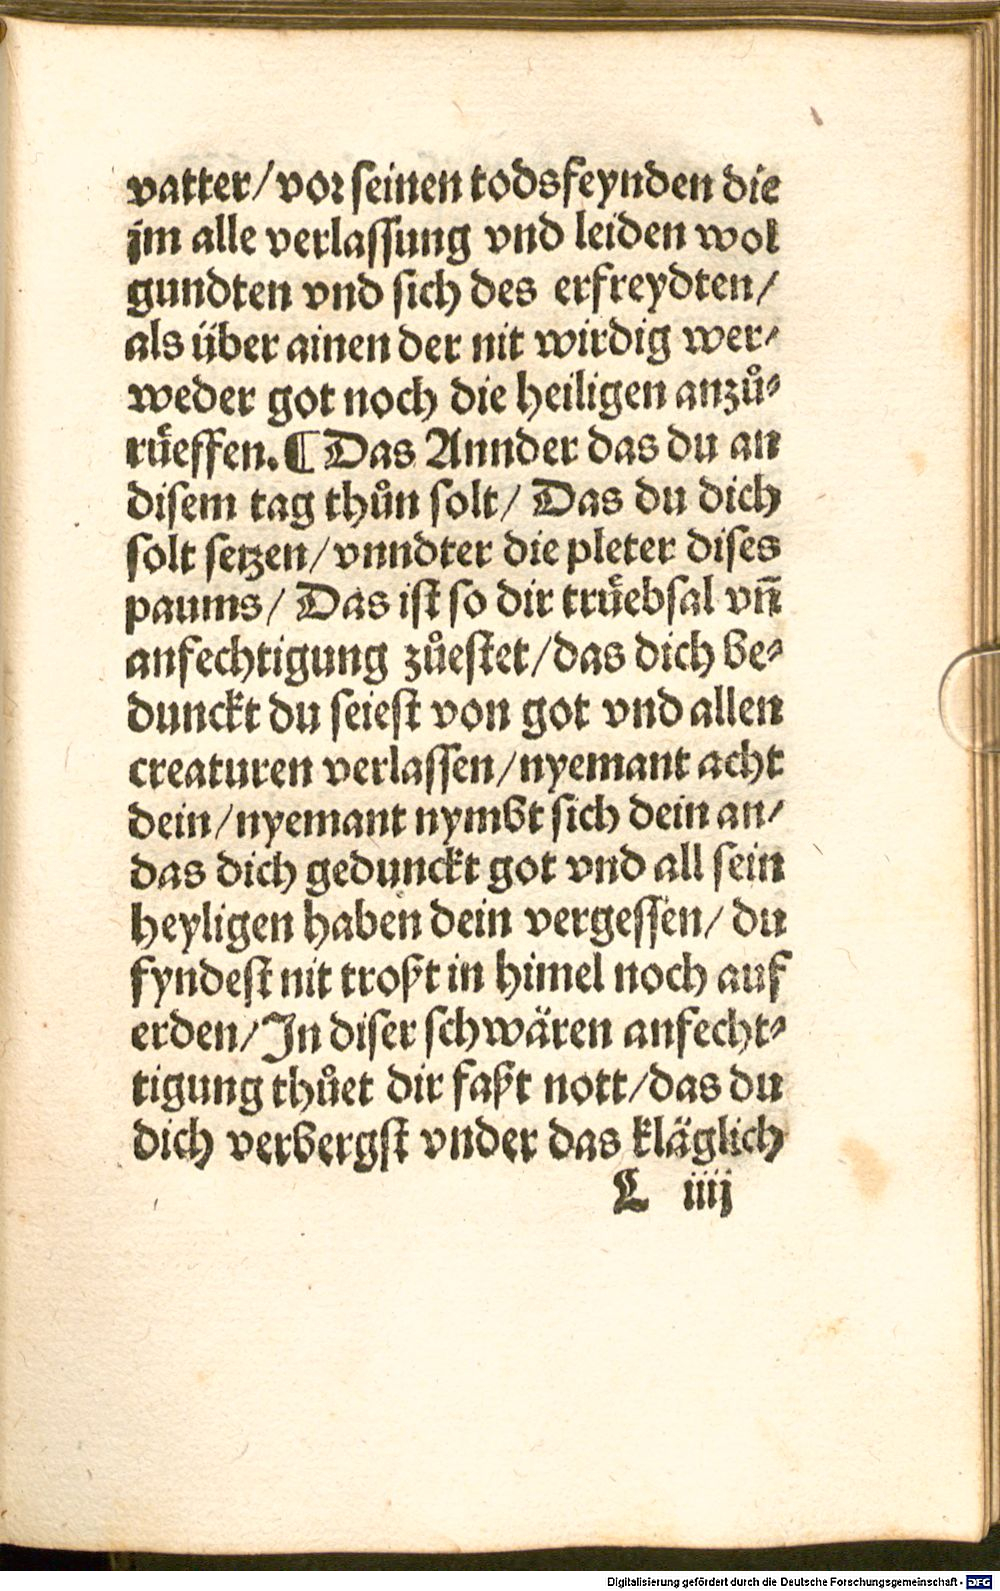 vatter/vor seinen todsfeynden die
jm alle verlassung vnd leiden wol
gundten vnd sich des erfreydten/
als über ainen der nit wirdig wer/
weder got noch die heiligen anzuͦ⸗
rüeffen. ¶ Das Annder das du an
disem tag thuͦn solt/ Das du dich
solt setzen/vnndter die pleter dises
paums/ Das ist so dir trüebsal vñ
anfechtigung zuͦestet/das dich be⸗
dunckt du seiest von got vnd allen
creaturen verlassen/nyemant acht
dein/nyemant nymbt sich dein an/
das dich gedunckt got vnd all sein
heyligen haben dein vergessen/ du
fyndest nit troßt in himel noch auf
erden/In diser schwären anfecht⸗
tigung thuͦet dir faßt nott/das du
dich verbergst vnder das kläglich
L iiij
Digitalisierung gefördert durch die Deutsche Forschungsgemeinschaft - DFG